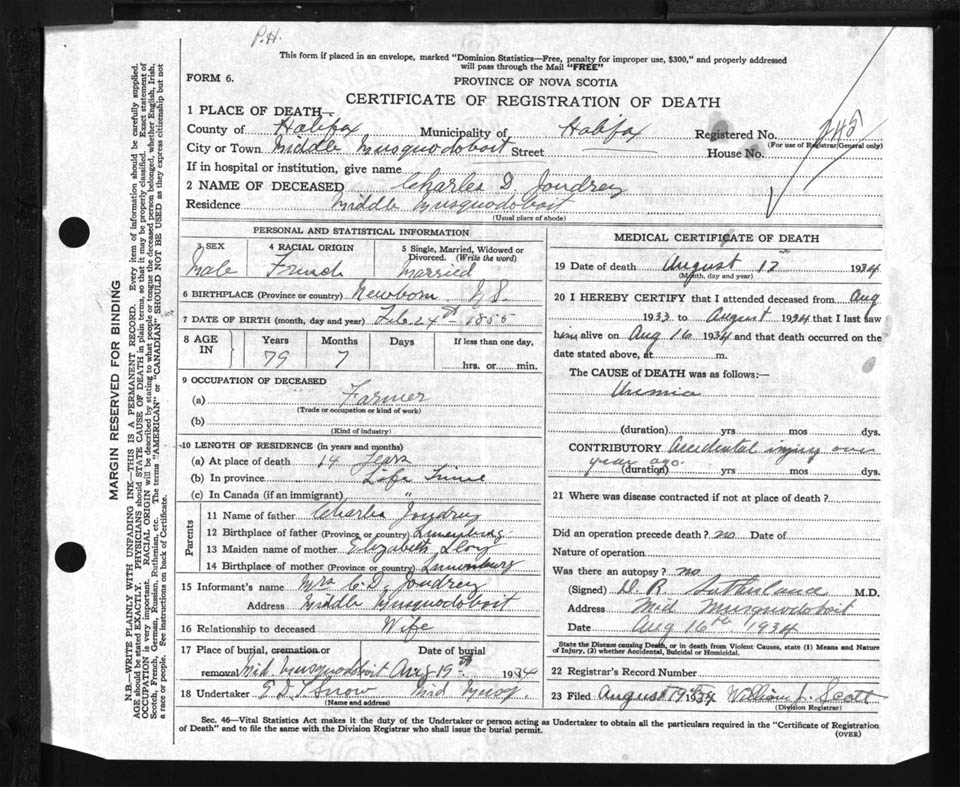 P.H.
This form if placed in an envelope, marked "Dominion Statistics—Free, penalty for improper use, $300," and properly addressed
will pass through the Mail "FREE"
FORM 6.
PROVINCE OF NOVA SCOTIA
CERTIFICATE OF REGISTRATION OF DEATH
1 PLACE OF DEATH—
County of Halifax Municipality of Halifax Registered No. 245
(For use of Registrar General only)
City or Town Middle Musquodoboit Street House No.
If in hospital or institution, give name
2 NAME OF DECEASED Charles D. Joudrey
Residence Middle Musquodoboit
(Usual place of abode)
PERSONAL AND STATISTICAL INFORMATION
3 SEX Male
4 RACIAL ORIGIN French
5 Single, Married, Widowed or Divorced. (Write the word) Married
6 BIRTHPLACE (Province or country) N.S.
7 DATE OF BIRTH (month, day and year) Feb. 24th 1855
8 AGE IN Years Months Days If less than one day,
79 7 hrs. or min.
9 OCCUPATION OF DECEASED
(a) Farmer
(Trade or occupation or kind of work)
(b)
(Kind of industry)
10 LENGTH OF RESIDENCE (in years and months)
(a) At place of death 14 Years
(b) In province Life Time
(c) In Canada (if an immigrant) "
Parents
11 Name of father Charles Joudrey
12 Birthplace of father (Province or country) Lunenburg
13 Maiden name of mother Elizabeth
14 Birthplace of mother (Province or country) Lunenburg
15 Informant's name Mrs C. D. Joudrey
Address Middle Musquodoboit
16 Relationship to deceased Wife
17 Place of burial, cremation or removal Date of burial
Mid. Musquodoboit Aug 19th 1934
18 Undertaker Snow Mid Musq.
(Name and address)
MEDICAL CERTIFICATE OF DEATH
19 Date of death August 1934
(Month, day and year)
20 I HEREBY CERTIFY that I attended deceased from Aug
1933 to August 1934 that I last saw
him alive on Aug 16 1934 and that death occurred on the
date stated above, at m.
The CAUSE of DEATH was as follows:—
Uremia
(duration) yrs mos. dys.
CONTRIBUTORY Accidental injury over
year ago
(duration) yrs. mos. dys.
21 Where was disease contracted if not at place of death?
Did an operation precede death? no Date of
Nature of operation
Was there an autopsy? no.
(Signed) D. R. Sutherland M.D.
Address Mid Musquodoboit
Date Aug 16th 1934
State the Disease causing Death, or in death from Violent Causes, state (1) Means and Nature
of Injury, (2) whether Accidental, Suicidal or Homicidal.
22 Registrar's Record Number
23 Filed August 1934 William J. Scott
(Division Registrar)
Sec. 46—Vital Statistics Act makes it the duty of the Undertaker or person acting as Undertaker to obtain all the particulars required in the "Certificate of Registration
of Death" and to file the same with the Division Registrar who shall issue the burial permit.
(OVER)
MARGIN RESERVED FOR BINDING
N.B.—WRITE PLAINLY WITH UNFADING INK—THIS IS A PERMANENT RECORD. Every item of information should be carefully supplied.
AGE should be stated EXACTLY. PHYSICIANS should STATE CAUSE OF DEATH in plain terms, so that it may be properly classified. Exact statement of
OCCUPATION is very important. RACIAL ORIGIN will be described by stating to what people or tongue the deceased person belonged, whether English, Irish,
Scotch, French, German, Russian, Ruthenian, etc. The terms "AMERICAN" or "CANADIAN" SHOULD NOT BE USED as they express citizenship but not
a race or people. See instructions on back of Certificate.